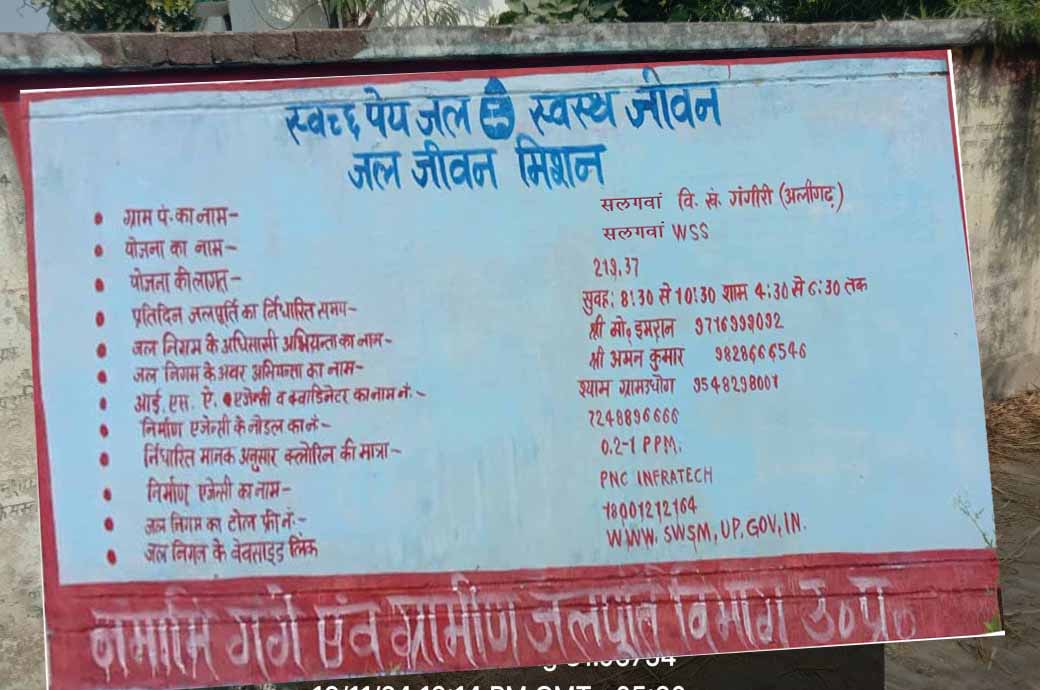 स्वच्छ पेय जल स्वस्थ जीवन
जल जीवन मिशन
• ग्राम पं. का नाम- सलगवां वि. खं. गंगीरी (अलीगढ़)
• योजना का नाम- सलगवां WSS
• योजना की लागत- 219.37
• प्रतिदिन जलपूर्ति का निर्धारित समय- सुवह: 8:30 से 10:30 शाम 4:30 से 6:30 तक
• जल निगम के अधिसासी अभियन्ता का नाम- श्री मो. इमरान 9716999092
• जल निगम के अवर अभियन्ता का नाम- श्री अमन कुमार 9828666546
• आई. एस. ऐ. एजेन्सी व क्वाडिनेटर का नाम नं:- श्याम ग्रामउधोग 9548298001
• निर्माण एजेन्सी के नोडल का नं- 7248896666
• निर्धारित मानक अनुसार क्लोरिन की मात्रा- 0.2-1 PPM.
• निर्माण एजेन्सी का नाम- PNC INFRATECH
• जल निगम का टोल फ्री नं:- 18001212164
• जल निगम के वेवसाइड लिंक WWW.SWSM,UP.GOV,IN.
नमामि गंगे एंव ग्रामीण जलपूर्ति विभाग उ० प्र०